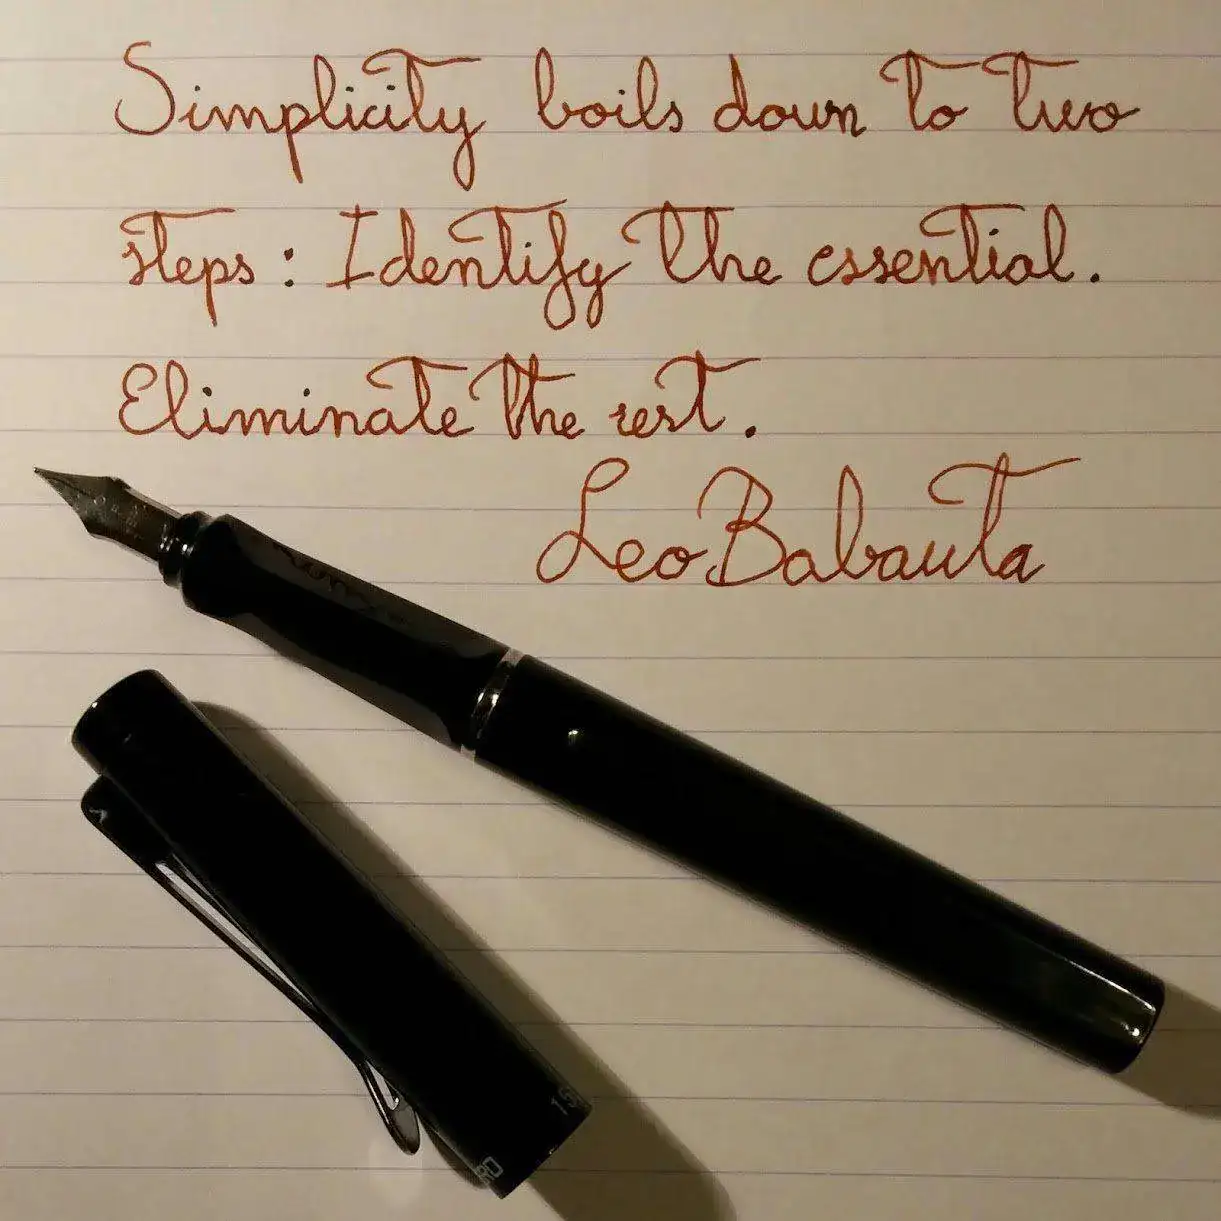 Simplicity boils down to two
steps: Identify the essential.
Eliminate the rest.
Leo Babauta